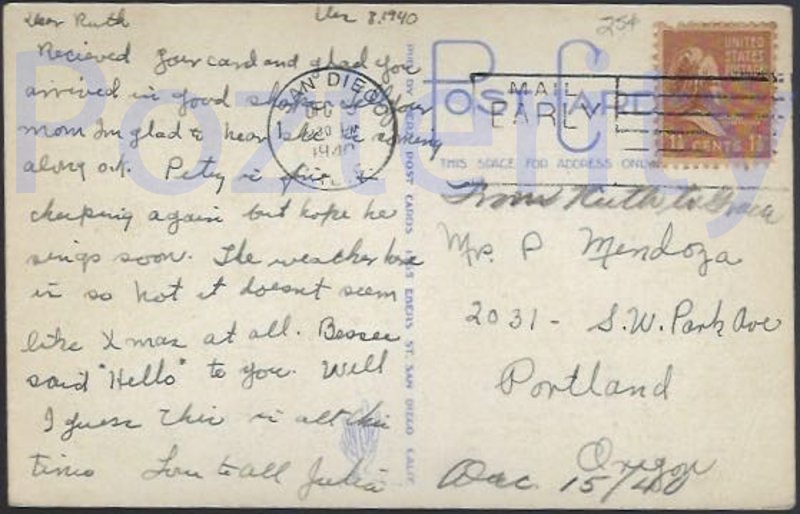 Dear Ruth
Dec 8, 1940
Recieved your card and glad you
arrived in good shape. Your
mom Im glad to hear she is coming
along ok. Petey is fine &
cheeping again but hope he
sings soon. The weather here
is so hot it doesnt seem
like Xmas at all. Bessee
said "Hello" to you. Well
I guess this is all this
time Love to all Julia
25¢
SAN DIEGO
DEC
1940
MAIL
EARLY
UNITED
STATES
POSTAGE
1½ CENTS 1½
POST CARD
THIS SPACE FOR ADDRESS ONLY
From Ruth to Grace
Mrs. P Mendoza
2031 - S.W. Park Ave
Portland
Oregon
Dec. 15/40
POST CARDS ST. SAN DIEGO CALIF.
Pozterity